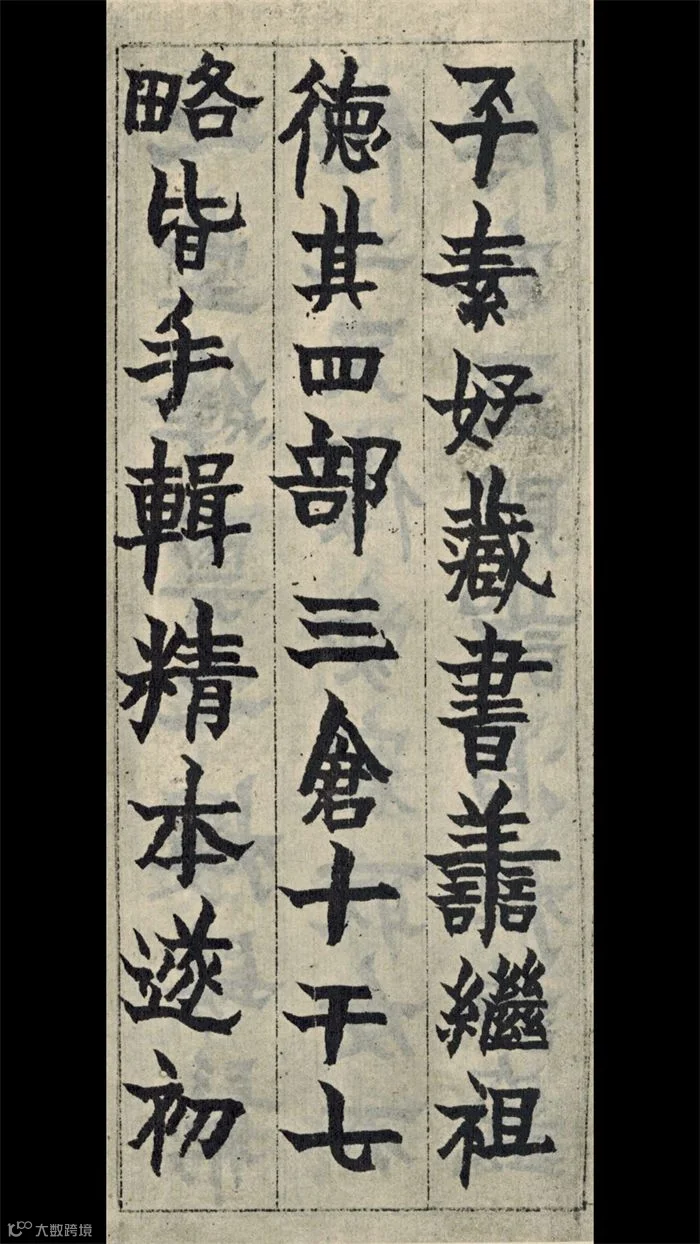 平素好藏書譱繼祖
徳其四部三倉十干七
略皆手輯精本遂初
大数跨境